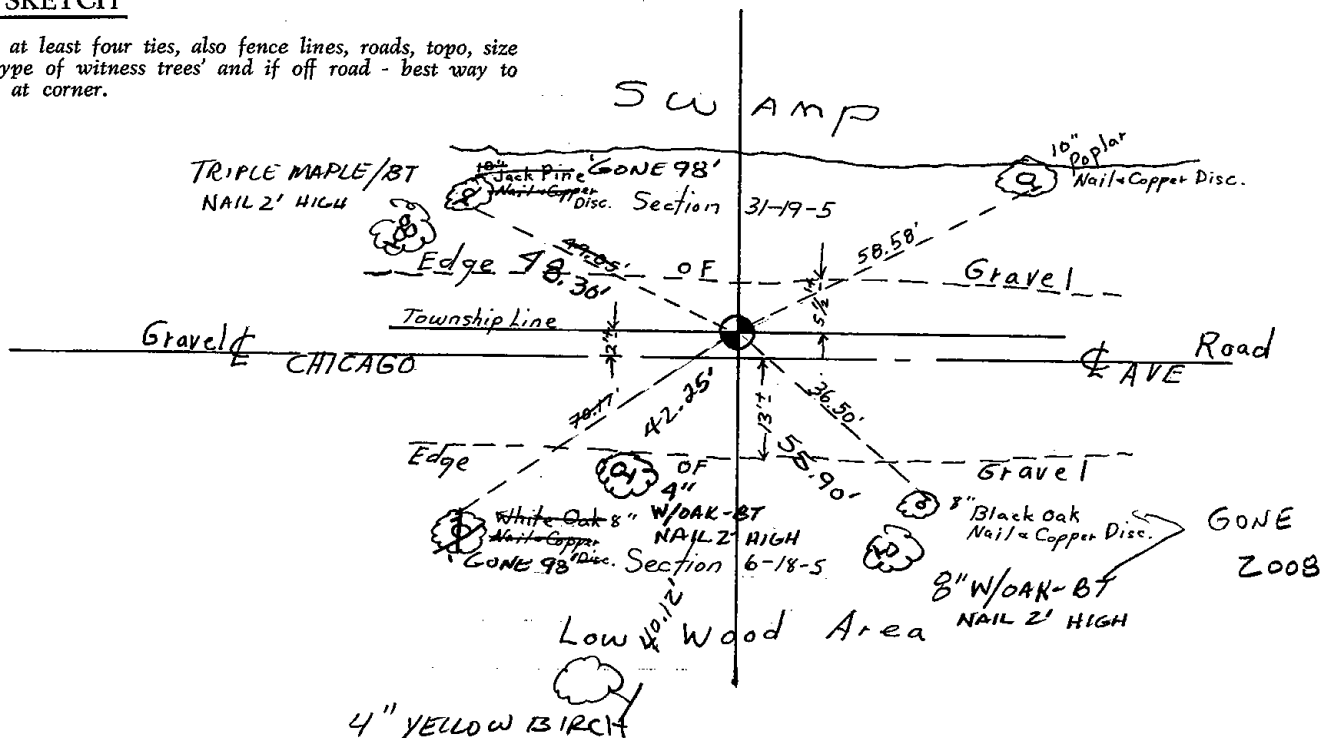 SKETCH
at least four ties, also fence lines, roads, topo, size
ype of witness trees' and if off road - best way to
at corner.
SWAMP
TRIPLE MAPLE/BT
NAIL 2' HIGH
10"
Jack Pine 'GONE 98'
Nail & Copper
Disc.
10"
Poplar
Nail & Copper Disc.
Section 31-19-5
49.05'
48.30'
58.58'
Edge OF Gravel
5 1/2'±
Township Line
Gravel ℄ CHICAGO ℄ AVE Road
2'±
70.17'
42.25'
13'±
36.50'
Edge OF Gravel
58.90'
4"
W/OAK-BT
NAIL 2' HIGH
White Oak 8"
Nail & Copper
Disc.
'GONE 98'
Section 6-18-5
8"
Black Oak
Nail & Copper Disc.
8" W/OAK-BT
NAIL 2' HIGH
GONE
2008
40.12'
Low Wood Area
4" YELLOW BIRCH